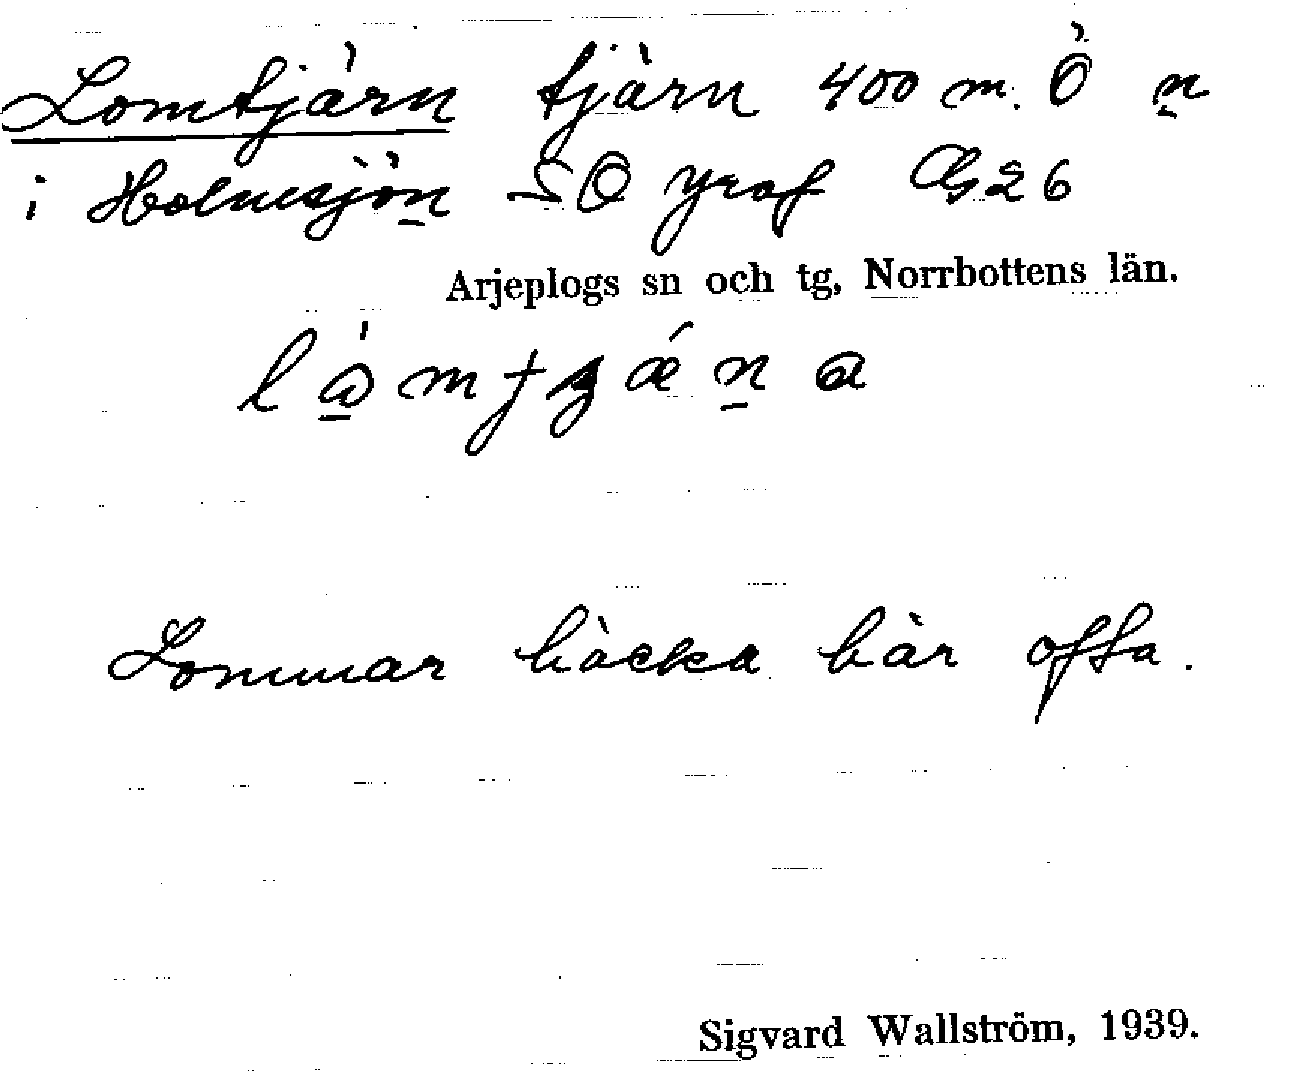 Lomtjärn tjärn 400 m. Ö n
i Holmsjön SO graf G26
Arjeplogs sn och tg, Norrbottens län.
Lommar häcka här ofta.
Sigvard Wallström, 1939.